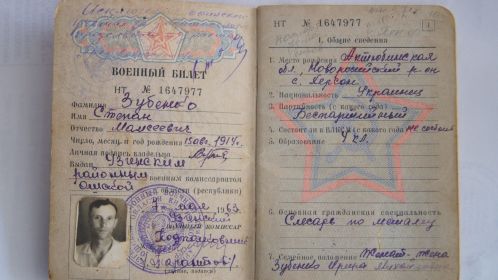 ВОЕННЫЙ БИЛЕТ
НТ № 1647977
Фамилия Зубенко
Имя Степан
Отчество Моисеевич
Число, месяц и год рождения 1914г.
Личная подпись владельца
Выдан Узгенским
районным военным комиссариатом
Ошской области (республики)
мая 1963
военный комиссар
Подполковник
НТ № 1647977
1
I. Общие сведения
1. Место рождения Актюбинская
обл., Новоросийский р-он
с. Херсон
2. Национальность Украинец
3. Партийность (с какого года)
Беспартийный
4. Состоит ли в ВЛКСМ (с какого года) не состоит
5. Образование 4 кл.
6. Основная гражданская специальность
Слесарь по металлу
7. Семейное положение Женат - жена
Зубенко Ирина